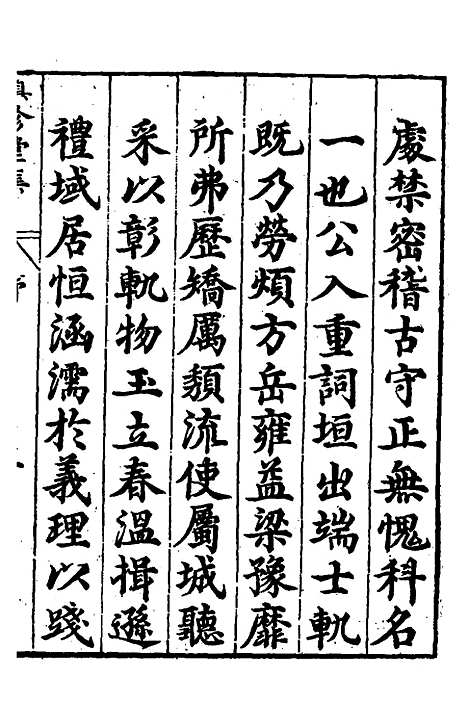 處禁密稽古守正無愧科名
一也公入重詞垣出端士軌
既乃勞煩方岳雍益梁豫靡
所弗歷矯厲頹流使屬城聽
采以彰軌物玉立春溫揖遜
禮域居恒涵濡於義理以踐